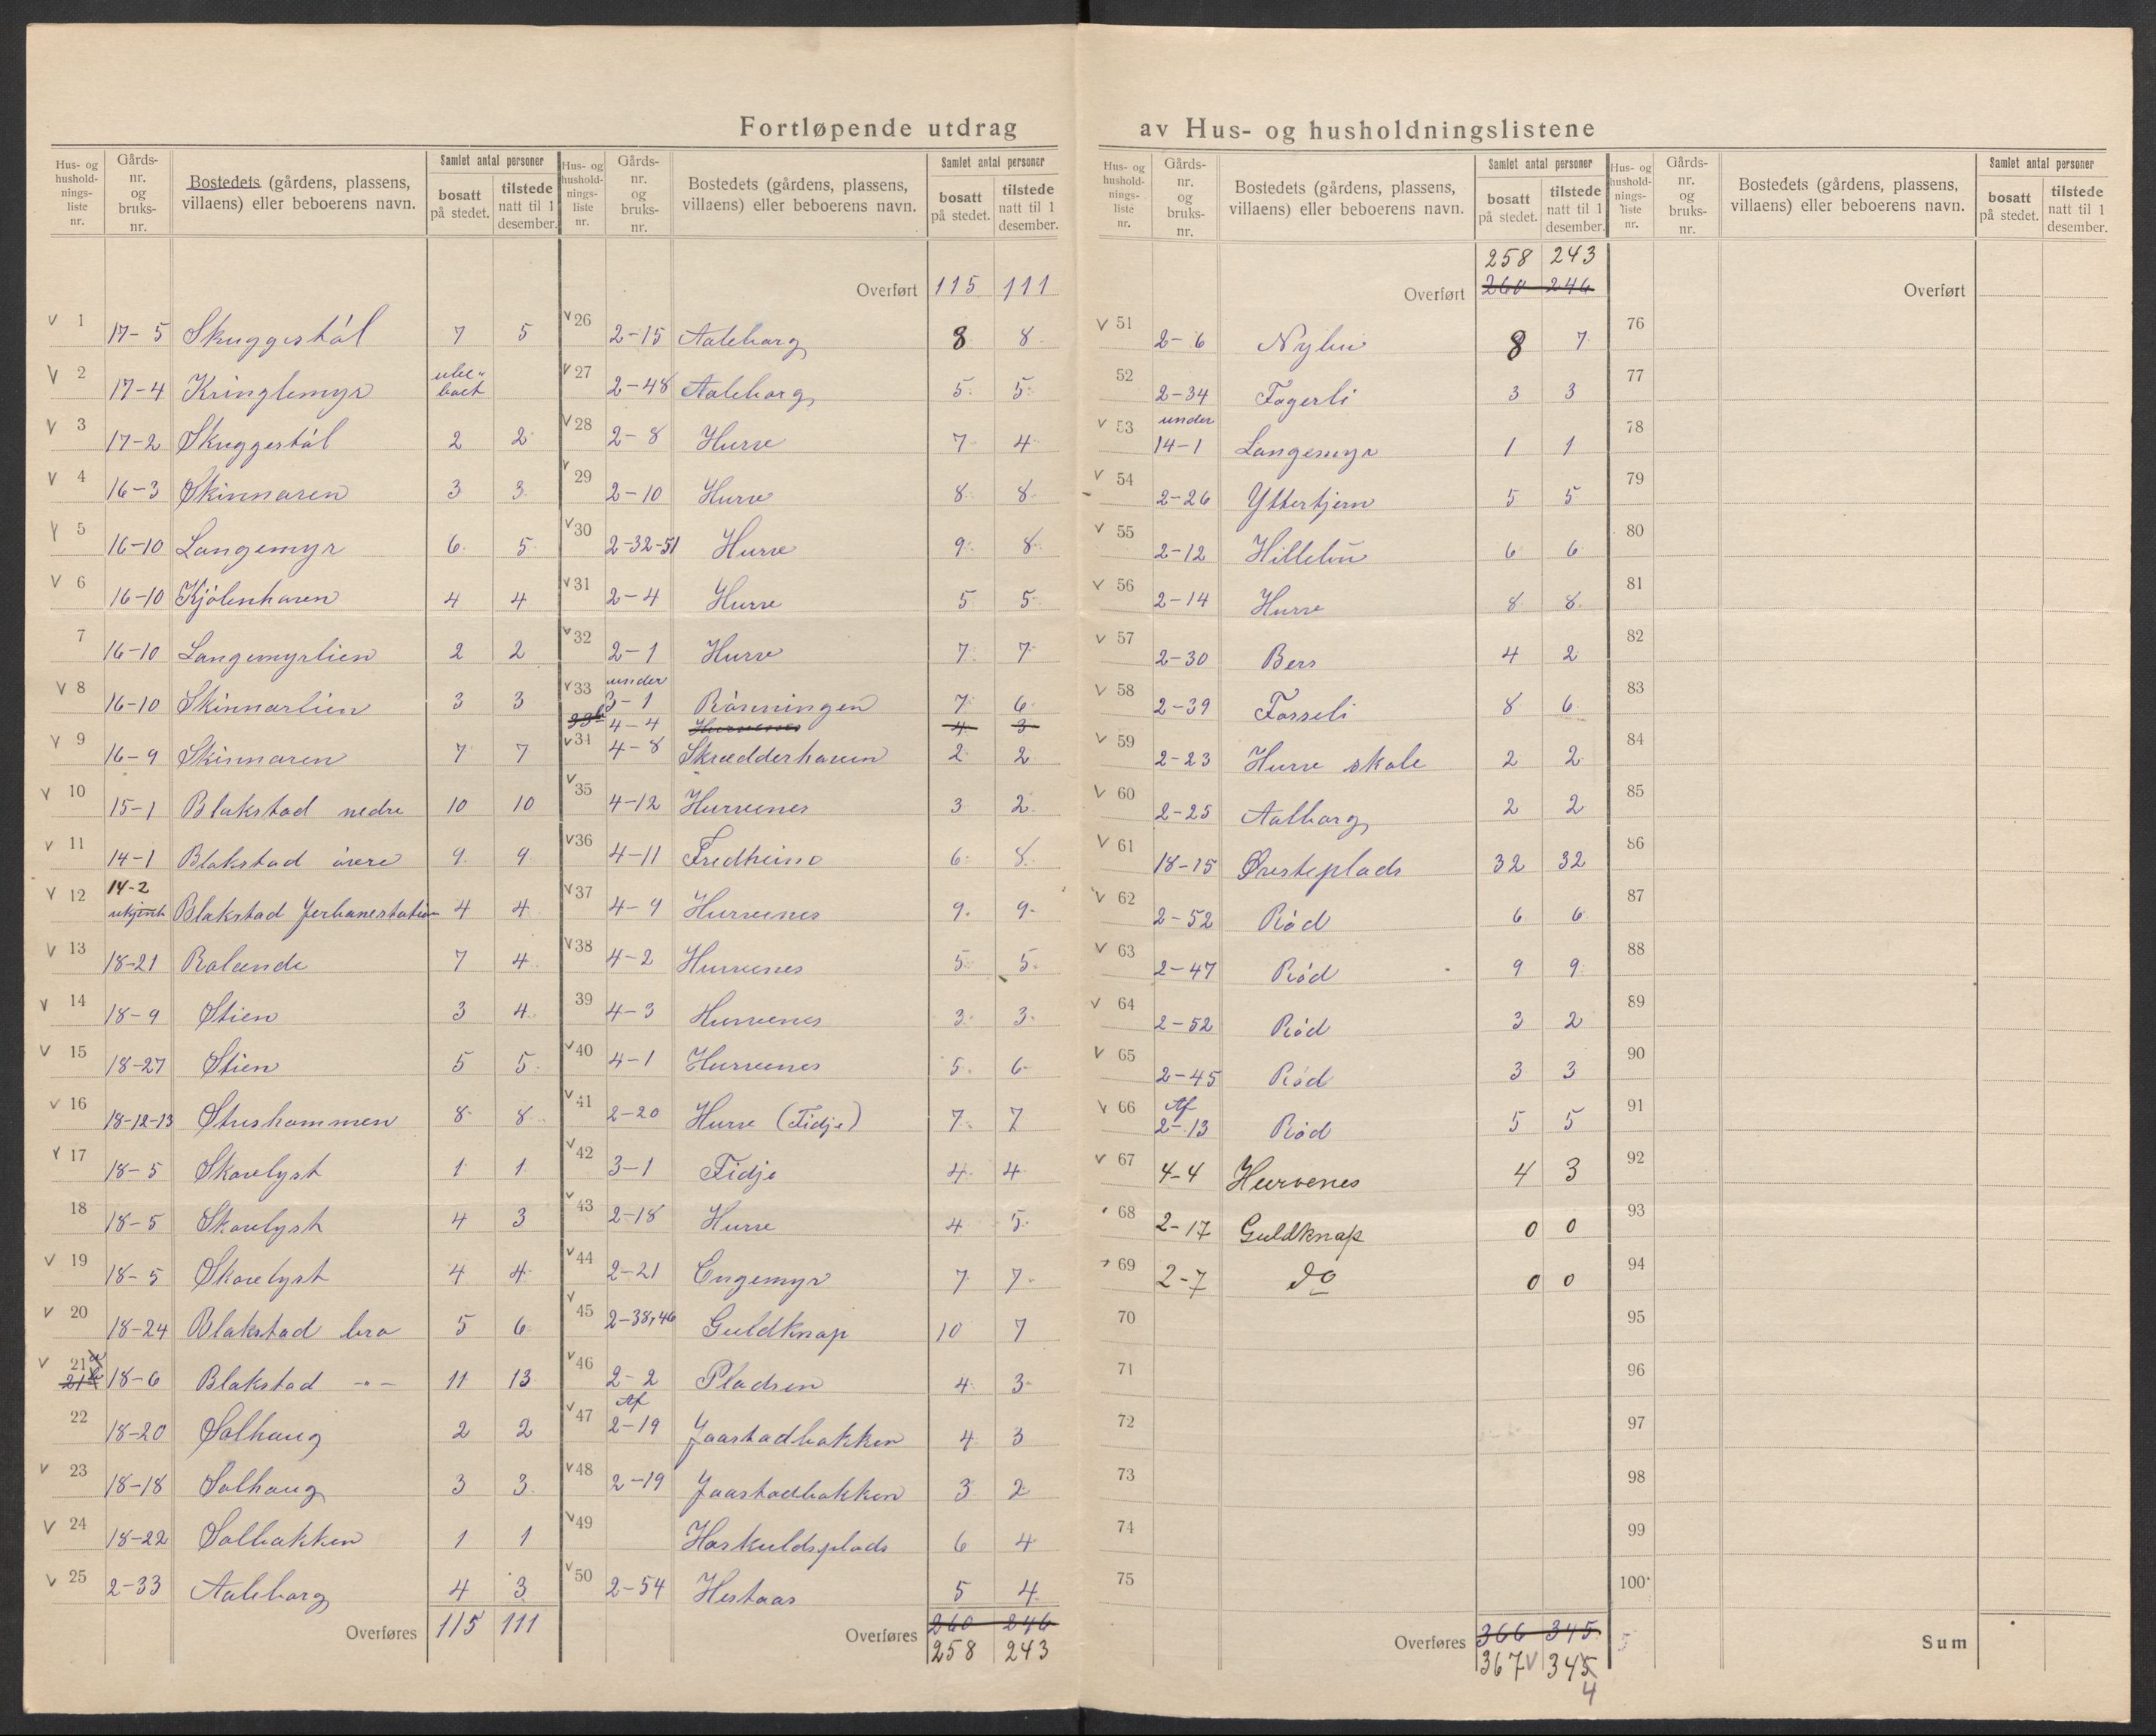 Fortløpende utdrag av Hus- og husholdningslistene
Hus- og hushold-nings-liste nr. | Gårds-nr. og bruks-nr. | Bostedets (gårdens, plassens, villaens) eller beboerens navn. | Samlet antal personer | bosatt på stedet. | tilstede natt til 1 desember.
1 17-5 Skuggestøl 7 5
2 17-4 Kringlemyr ube-boet
3 17-2 Skuggestøl 2 2
4 16-3 Skinnaren 3 3
5 16-10 Langemyr 6 5
6 16-10 Kjølenharen 4 4
7 16-10 Langemyrlien 2 2
8 16-10 Skinnarlien 3 3
9 16-9 Skinnaren 7 7
10 15-1 Blakstad nedre 10 10
11 14-1 Blakstad øvre 9 9
12 14-2 ukjent Blakstad Jerbanestation 4 4
13 18-21 Rolænde 7 4
14 18-9 Stien 3 4
15 18-27 Stien 5 5
16 18-12-13 Strishammen 8 8
17 18-5 Skovlyst 1 1
18 18-5 Skovlyst 4 3
19 18-5 Skovlyst 4 4
20 18-24 Blakstad bro 5 6
21a 21b 18-6 Blakstad -"- 11 13
22 18-20 Solhaug 2 2
23 18-18 Solhaug 3 3
24 18-22 Solbakken 1 1
25 2-33 Aaleborg 4 3
Overføres 115 111
Hus- og hushold-nings-liste nr. | Gårds-nr. og bruks-nr. | Bostedets (gårdens, plassens, villaens) eller beboerens navn. | Samlet antal personer | bosatt på stedet. | tilstede natt til 1 desember.
Overført 115 111
26 2-15 Aaleborg 8 8
27 2-48 Aaleborg 5 5
28 2-8 Hurve 7 4
29 2-10 Hurve 8 8
30 2-32-51 Hurve 9 8
31 2-4 Hurve 5 5
32 2-1 Hurve 7 7
33 under 3-1 Rønningen 7 6
33b 4-4 Hurvenes 4 3
34 4-8 Skrædderhaven 2 2
35 4-12 Hurvenes 3 2
36 4-11 Fredheim 6 8
37 4-9 Hurvenes 9 9
38 4-2 Hurvenes 5 5
39 4-3 Hurvenes 3 3
40 4-1 Hurvenes 5 6
41 2-20 Hurve (Fidje) 7 7
42 3-1 Fidje 4 4
43 2-18 Hurve 4 5
44 2-21 Engemyr 7 7
45 2-38,46 Guldknap 10 7
46 2-2 Pladsen 4 3
47 Af 2-19 Jaastadbakken 4 3
48 2-19 Jaastadbakken 3 2
49 Haskuldsplads 6 4
50 2-54 Hestaas 5 4
Overføres 260 246
258 243
Hus- og hushold-nings-liste nr. | Gårds-nr. og bruks-nr. | Bostedets (gårdens, plassens, villaens) eller beboerens navn. | Samlet antal personer | bosatt på stedet. | tilstede natt til 1 desember.
258 243
Overført 260 246
51 2-6 Nybu 8 7
52 2-34 Fagerli 3 3
53 under 14-1 Langemyr 1 1
54 2-26 Yttertjern 5 5
55 2-12 Hillebu 6 6
56 2-14 Hurve 8 8
57 2-30 Bers 4 2
58 2-39 Fosseli 8 6
59 2-23 Hurve skole 2 2
60 2-25 Aalborg 2 2
61 18-15 Øvsteplads 32 32
62 2-52 Rød 6 6
63 2-47 Rød 9 9
64 2-52 Rød 3 2
65 2-45 Rød 3 3
66 Af 2-13 Rød 5 5
67 4-4 Hurvenes 4 3
68 2-17 Guldknap 0 0
69 2-7 do 0 0
70
71
72
73
74
75
Overføres 366 345
367 345
4
Hus- og hushold-nings-liste nr. | Gårds-nr. og bruks-nr. | Bostedets (gårdens, plassens, villaens) eller beboerens navn. | Samlet antal personer | bosatt på stedet. | tilstede natt til 1 desember.
Overført
76
77
78
79
80
81
82
83
84
85
86
87
88
89
90
91
92
93
94
95
96
97
98
99
100
Sum